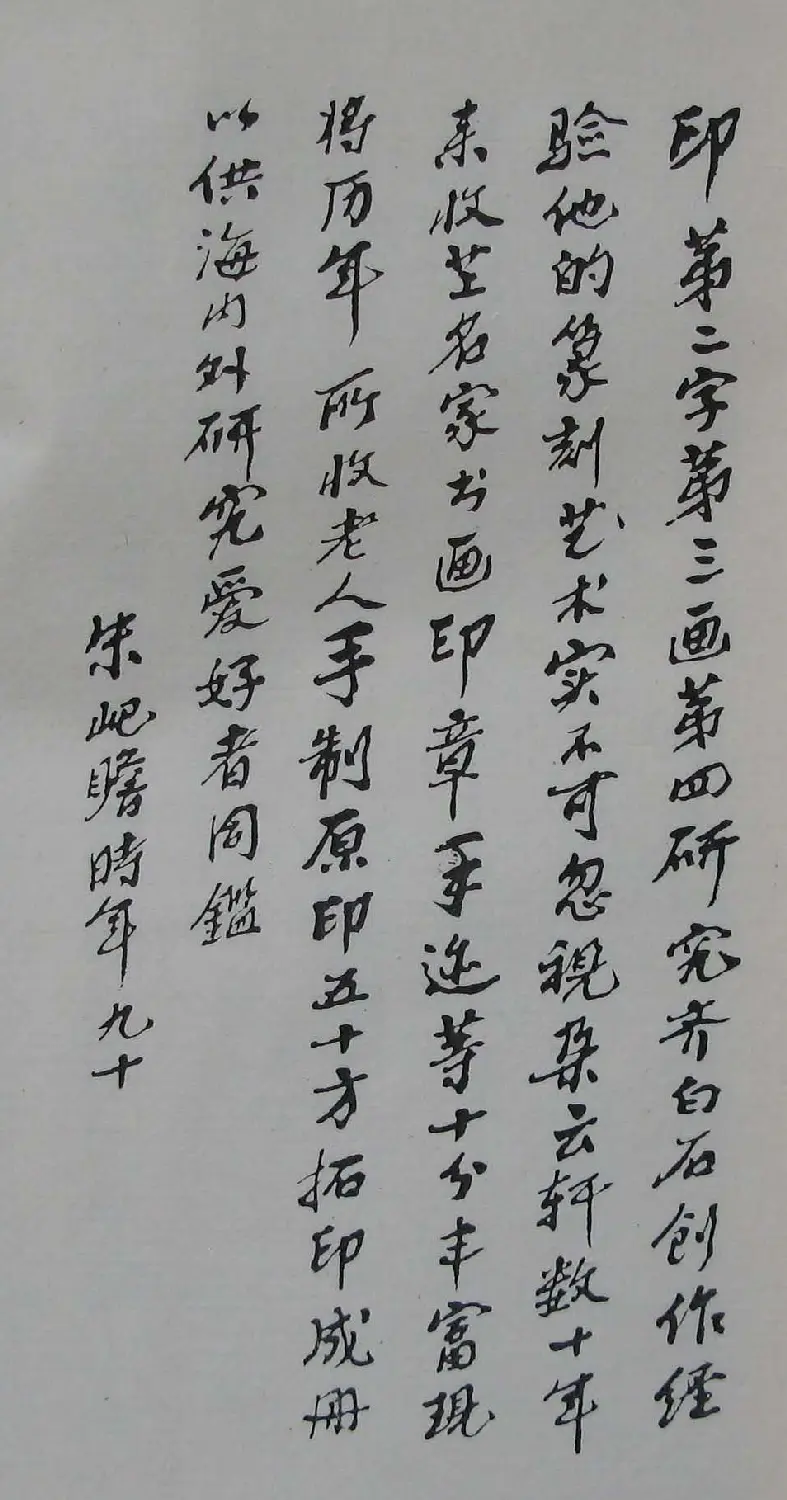 印第二字第三画第四研究齐白石创作经
验他的篆刻艺术实不可忽视朵云轩数十年
来收芷名家书画印章手迹等十分丰富现
将历年所收老人手制原印五十方拓印成册
以供海内外研究爱好者同鑑
朱屺瞻時年九十